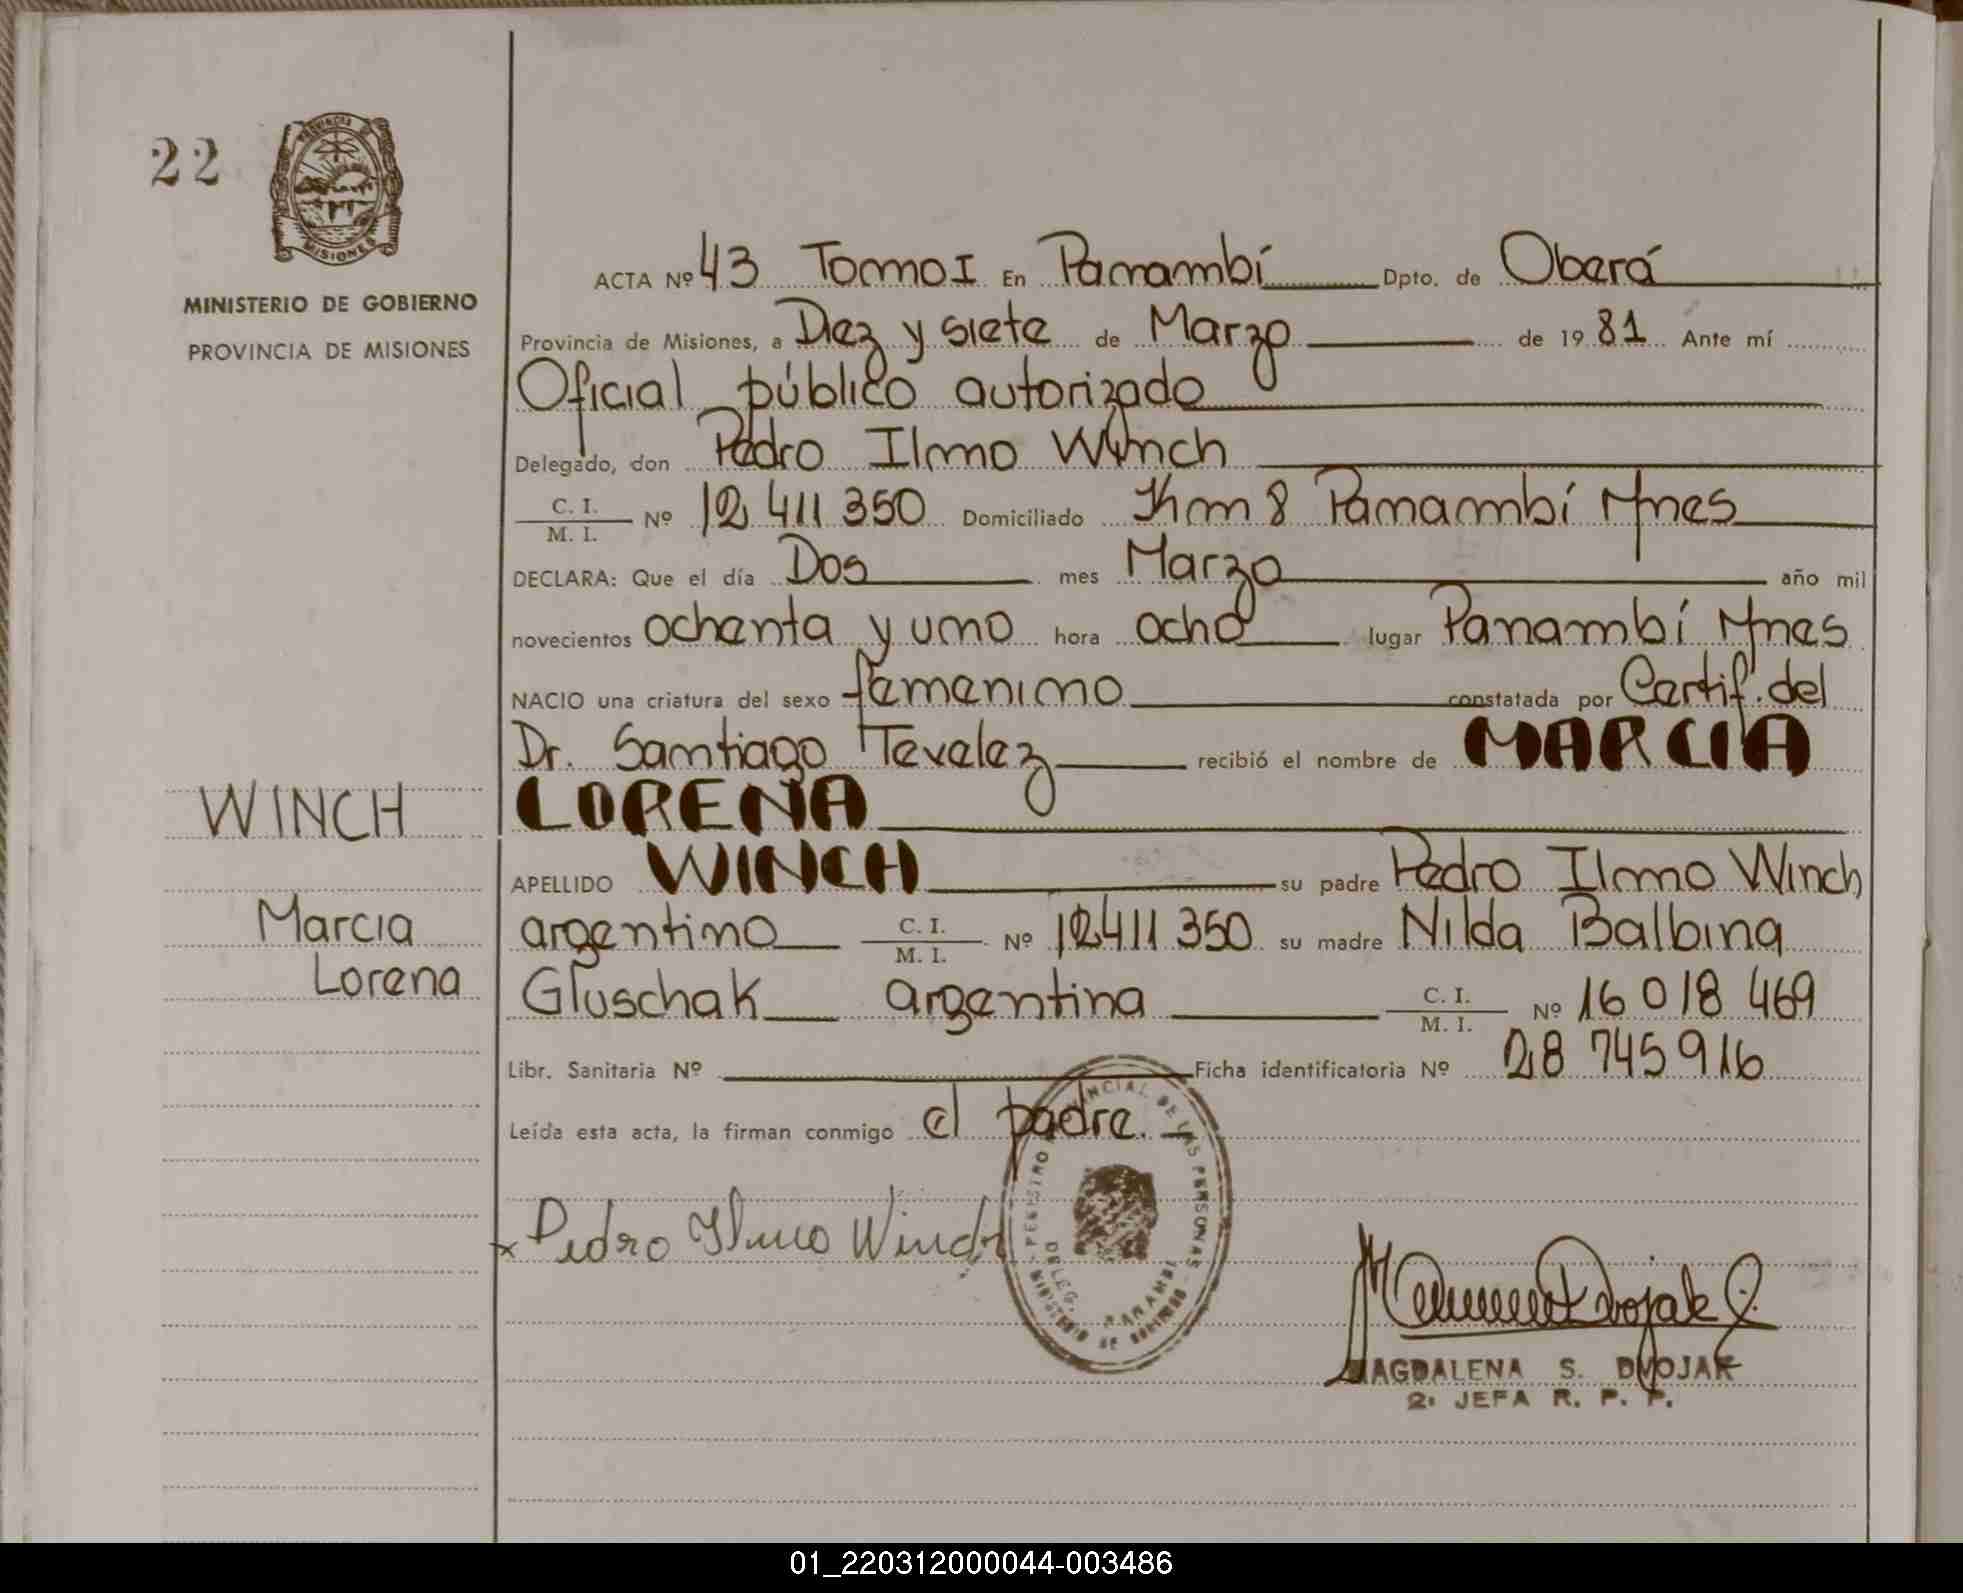 22
PROVINCIA DE
MISIONES
MINISTERIO DE GOBIERNO
PROVINCIA DE MISIONES
ACTA Nº 43 Tomo I En Panambí Dpto. de Oberá
Provincia de Misiones, a Diez y siete de Marzo de 19 81 Ante mí
Oficial público autorizado
Delegado, don Pedro Ilmo Winch
C. I. / M. I. Nº 12 411 350 Domiciliado Km 8 Panambí Mnes
DECLARA: Que el día Dos mes Marzo año mil
novecientos ochenta y uno hora ocho lugar Panambí Mnes
NACIO una criatura del sexo femenino constatada por Certif. del
Dr. Santiago Tevelez recibió el nombre de MARCIA
LORENA
WINCH
APELLIDO WINCH su padre Pedro Ilmo Winch
Marcia
argentino C. I. / M. I. Nº 12411 350 su madre Nilda Balbina
Lorena
Gluschak argentina C. I. / M. I. Nº 16 018 469
Libr. Sanitaria Nº Ficha identificatoria Nº 28 745 916
Leída esta acta, la firman conmigo el padre.
x Pedro Ilmo Winch
REGISTRO PROVINCIAL DE LAS PERSONAS
DELEG. PANAMBI
MINISTERIO DE GOBIERNO
Dvojak
MAGDALENA S. DVOJAK
2ª JEFA R. P. P.
01_220312000044-003486